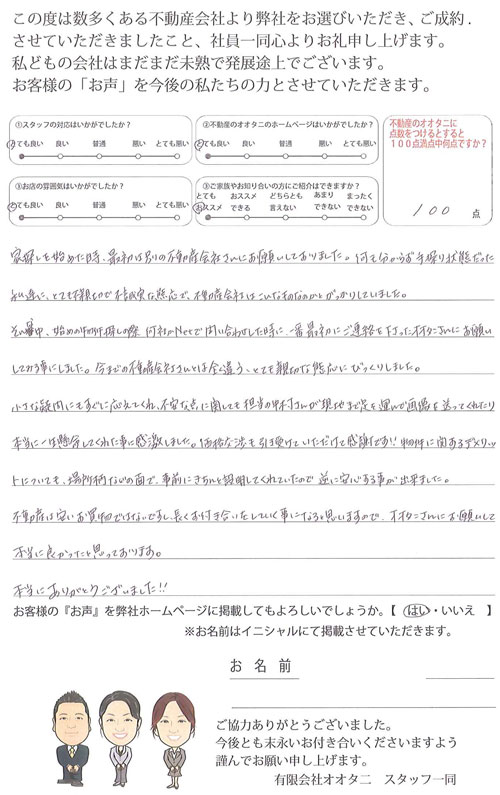 この度は数多くある不動産会社より弊社をお選びいただき、ご成約.
させていただきましたこと、社員一同心よりお礼申し上げます。
私どもの会社はまだまだ未熟で発展途上でございます。
お客様の「お声」を今後の私たちの力とさせていただきます。
①スタッフの対応はいかがでしたか？
とても良い 良い 普通 悪い とても悪い
②不動産のオオタニのホームページはいかがでしたか？
とても良い 良い 普通 悪い とても悪い
③お店の雰囲気はいかがでしたか？
とても良い 良い 普通 悪い とても悪い
③ご家族やお知り合いの方にご紹介はできますか？
とても おススメ どちらとも あまり まったく
おススメ できる 言えない できない できない
不動産のオオタニに
点数をつけるとすると
１００点満点中何点ですか？
100 点
家探しを始めた時、最初は別の不動産会社さんにお願いしておりました。何も分からず手探り状態だった
私達に、とても不親切で不誠実な態応で、不動産会社はこんなものなのかとがっかりしていました。
そんな中、始めの物件探しの際 何社かNetで問い合わせした時に、一番最初にご連絡を下さったオオタニさんにお願い
してみる事にしました。今までの不動産会社さんとは全く違う、とても親切な態応にびっくりしました。
小さな疑問にもすぐに応えてくれ、不安な点に関しても担当の中村さんが現地まで足を運んで画像を送ってくれたり
本当に一生懸命してくれた事に感激しました。価格交渉も引き受けていただけて感謝です!! 物件に関するデメリッ
トについても、場所柄などの面で、事前にきちんと説明してくれていたので逆に安心する事が出来ました。
不動産は安いお買物ではないですし、長くお付き合いをしていく事になると思いますので、オオタニさんにお願いして
本当に良かったと思っております。
本当にありがとうございました!!
お客様の『お声』を弊社ホームページに掲載してもよろしいでしょうか。【 はい・いいえ 】
※お名前はイニシャルにて掲載させていただきます。
お 名 前
ご協力ありがとうございました。
今後とも末永いお付き合いくださいますよう
謹んでお願い申し上げます。
有限会社オオタニ スタッフ一同